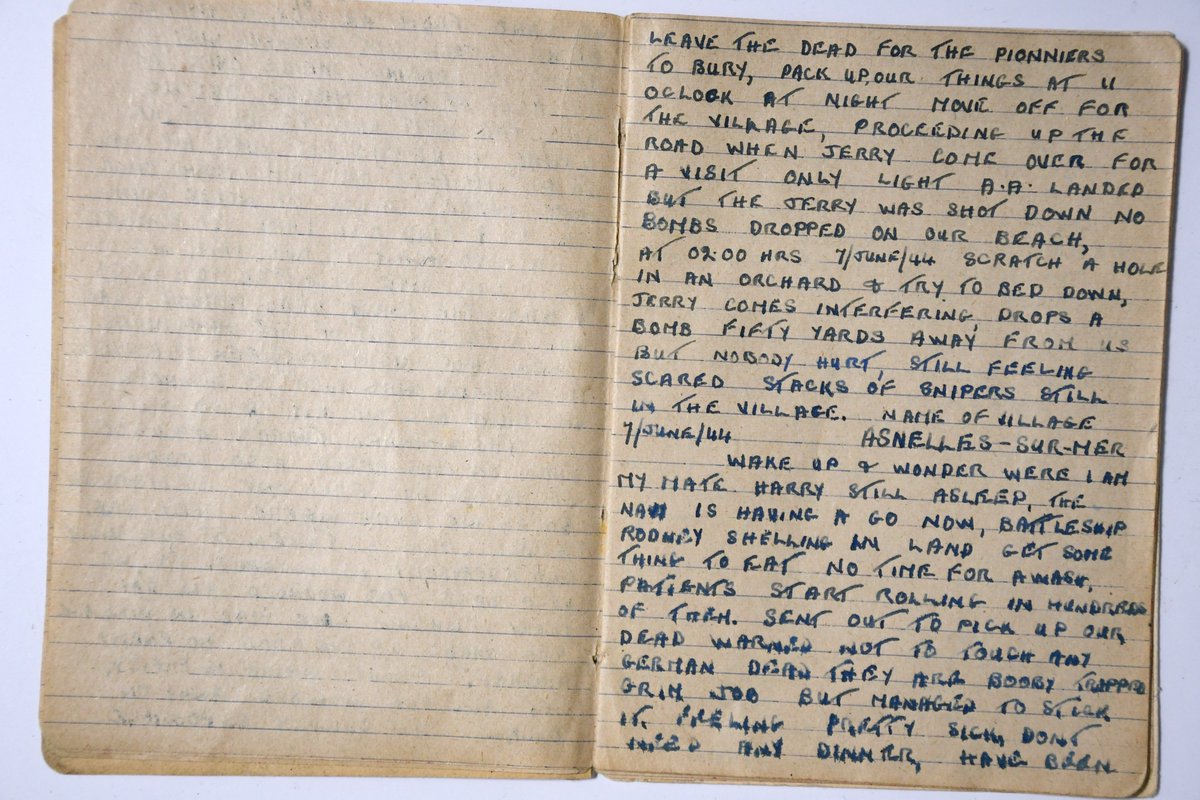 LEAVE THE DEAD FOR THE PIONNIERS
TO BURY, PACK UP, OUR THINGS AT 11
OCLOCK AT NIGHT MOVE OFF FOR
THE VILLAGE, PROCEEDING UP THE
ROAD WHEN JERRY COME OVER FOR
A VISIT ONLY LIGHT A.A. LANDED
BUT THE JERRY WAS SHOT DOWN NO
BOMBS DROPPED ON OUR BEACH,
AT 02.00 HRS 7/JUNE/44 SCRATCH A HOLE
IN AN ORCHARD & TRY TO BED DOWN,
JERRY COMES INTERFERING, DROPS A
BOMB FIFTY YARDS AWAY FROM US
BUT NOBODY HURT, STILL FEELING
SCARED STACKS OF SNIPERS STILL
IN THE VILLAGE. NAME OF VILLAGE
7/JUNE/44 ASNELLES-SUR-MER
WAKE UP & WONDER WERE I AM
MY MATE HARRY STILL ASLEEP, THE
IS HAVING A GO NOW, BATTLESHIP
RODNEY SHELLING IN LAND GET SOME
THING TO EAT NO TIME FOR A WASH,
PATIENTS START ROLLING IN HUNDREDS
OF THEM. SENT OUT TO PICK UP OUR
DEAD WARNED NOT TO TOUCH ANY
GERMAN DEAD THEY ARE BOOBY TRAPPED
GRIM JOB BUT MANAGED TO STICK
IT, FEELING PRETTY SICK, DONT
NEED ANY DINNER, HAVE BEEN